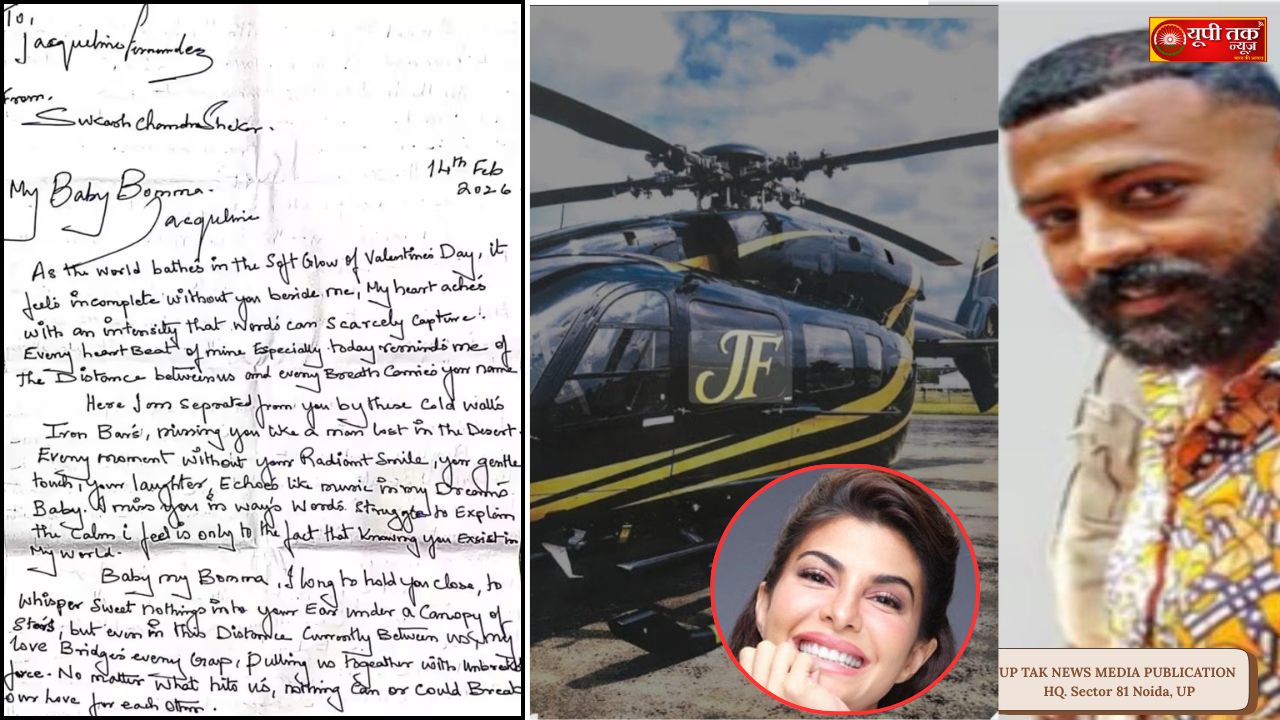 To,
Jacqueline Fernandez
From,
Sukash ChandraShekar.
14th Feb
2026
My Baby Bomma.
Jacqueline
As the world bathes in the Soft Glow of Valentines Day, it
feels incomplete without you beside me, My heart aches
with an intensity that words can scarcely capture.
Every heart Beat of mine Especially today reminds me of
the Distance between us and every Breath Carries your name
Here I am seprated from you by these Cold walls
Iron Bars, missing you like a man lost in the Desert.
Every moment without your Radiant Smile, your gentle
touch, your laughter, Echoes like music in my Dreams
Baby. I miss you in ways Words struggle to Explain
the Calm i feel is only to the fact that Knowing you Exsist in
My World.
Baby my Bomma, I long to hold you close, to
whisper sweet nothings into your Ear under a Canopy of
Stars, but even in this Distance Currently Between us, my
Love Bridges every Gap, pulling us together with
force. No matter what hits us, nothing Can or Could Break
our love for each other.
JF
यूपी तक
न्यूज़
UP TAK NEWS MEDIA PUBLICATION
HQ. Sector 81 Noida, UP